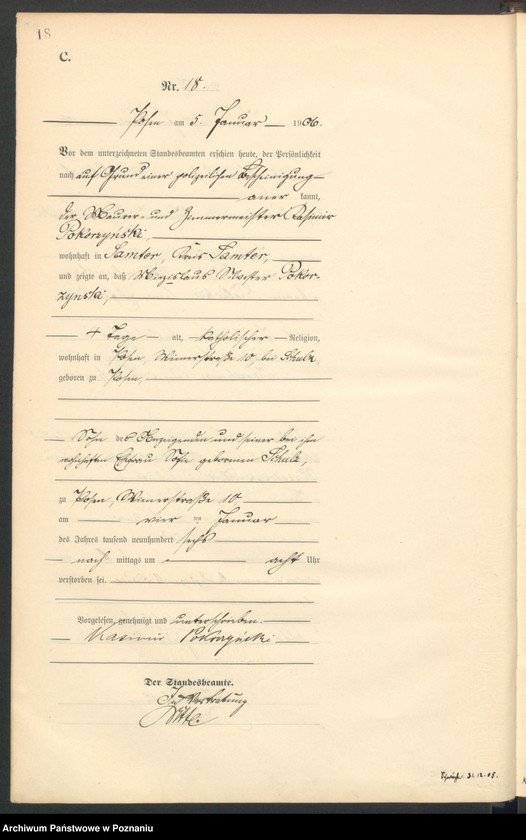 18
C.
Nr. 18.
Posen am 5. Januar 1906.
Vor dem unterzeichneten Standesbeamten erschien heute, der Persönlichkeit
nach auf Grund einer polizeilichen Bescheinigung
aner kannt,
der Maurer- und Zimmermeister Kasimir
Pokorzyński,
wohnhaft in Samter, Kreis Samter,
und zeigte an, daß Miezislaus Sylvester Pokor-
zynski,
4 Tage alt, katholischer Religion,
wohnhaft in Posen, Wienerstraße 10, bei Schulz,
geboren zu Posen,
Sohn des Anzeigenden und seiner bei ihm
wohnhaften Ehefrau Sofie geborenen Schulz,
zu Posen, Wienerstraße 10
am vier ten Januar
des Jahres tausend neunhundert sechs
nach mittags um acht Uhr
verstorben sei.
Vorgelesen, genehmigt und unterschrieben.
Kazimir Pokorzyński
Der Standesbeamte.
In Vertretung
31.12.05.
Archiwum Państwowe w Poznaniu